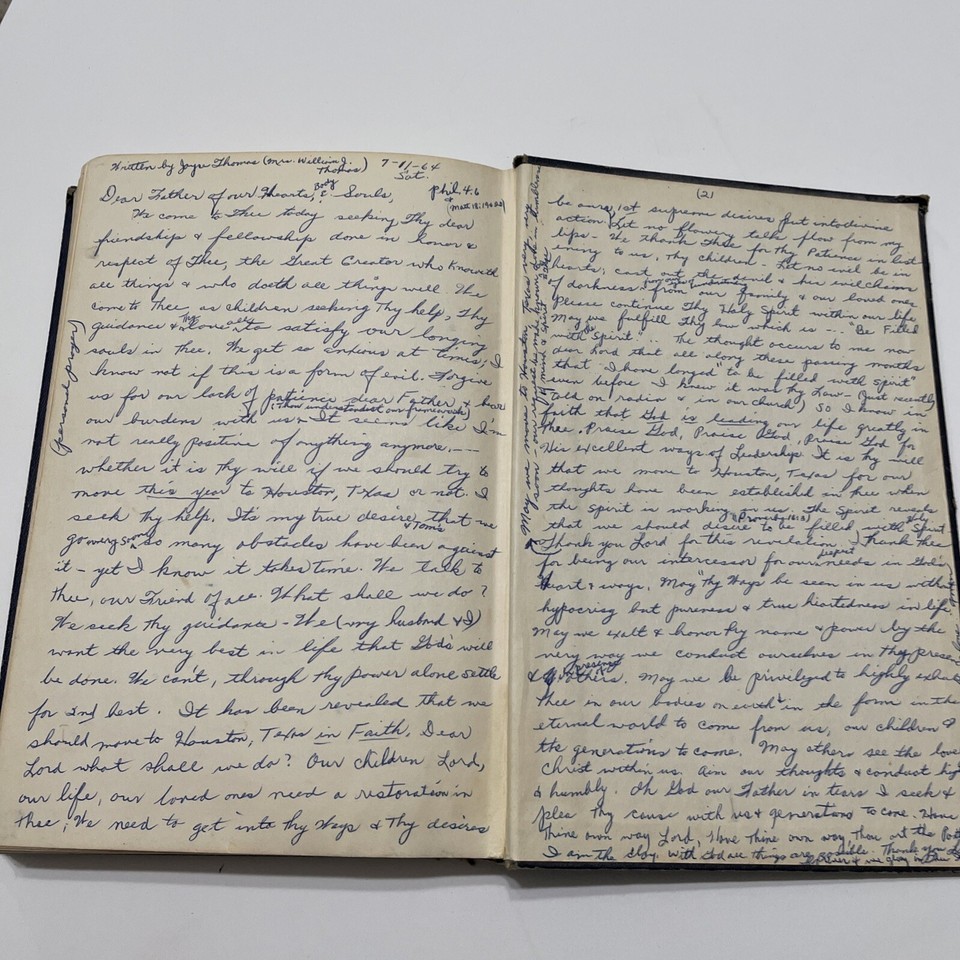 Written by Joyce Thomas (Mrs. William J. Thomas) 7-11-64
Sat.
Dear Father of our Hearts, Body & Souls, Phil 4:6
We come to Thee today seeking Thy dear (Matt 18:19&20)
friendship & fellowship done in honor &
respect of Thee, the Great Creator who knoweth
all things & who doeth all things well. We
come to Thee, as children seeking Thy help, Thy
guidance & Thy love to satisfy our longing
souls in Thee. We get so anxious at times, I
know not if this is a form of evil. Forgive
us for our lack of patience dear Father & bear
our burdens with us. (Thou understandest our frames) It seems like I'm
not really positive of anything anymore, ---
whether it is Thy will if we should try to
move this year to Houston, Texas or not. I
seek Thy help. It's my true desire & Tom's that we
go so many obstacles have been against
it - yet I know it takes time. We talk to
Thee, our Friend of all. What shall we do?
We seek Thy guidance - We (my husband & I)
want the very best in life that God's will
be done. We can't, through Thy power alone settle
for 2nd best. It has been revealed that we
should move to Houston, Texas in Faith. Dear
Lord what shall we do? Our children Lord,
our life, our loved ones need a restoration in
Thee; We need to get into Thy Ways & Thy desires
(personal prayer)
(2)
be ours, 1st supreme desires put into divine
action. Let no flowery talk flow from my
lips - We thank Thee for Thy Patience in
enemy to us, Thy children - Let no evil be in
hearts; cast out the devil & his evil
of darkness from our family & our loved ones
Please continue Thy Holy Spirit within our life
May we fulfill Thy law which is -- "Be Filled
with Spirit".. The thought occurs to me now
dear Lord that all along these passing months
that "I have longed" to be filled with spirit"
even before I knew it was thy Law - (Just recently
told on radio & in our church) So I know in
faith that God is leading our life greatly in
Thee. Praise God, Praise God, Praise God for
His excellent ways of Leadership. It is thy will
that we move to Houston, Texas for our
thoughts have been established in thee when
the spirit is working on us. (Proverbs 16:3) The Spirit reveals
that we should desire to be filled with Holy Spirit
(Thank you Lord for this revelation) Thank Thee
for being our intercessor for our needs in God's
heart & ways. May Thy Ways be seen in us without
hypocrisy but pureness & true heartedness in life
May we exalt & honor Thy name & power by the
very way we conduct ourselves in Thy presence
& others presence. May we be privileged to highly exalt
Thee in our bodies on in the form in the
eternal world to come from us, our children &
the generations to come. May others see the love
Christ within us. Aim our thoughts & conduct high
& humbly. Oh God our Father in tears I seek &
plea Thy cause with us & generations to come. Have
Thine own way Lord, Have Thine own way, Thou art the Potter
I am the clay. With God all things are possible. Thank you
May we move to Houston, Texas very
soon